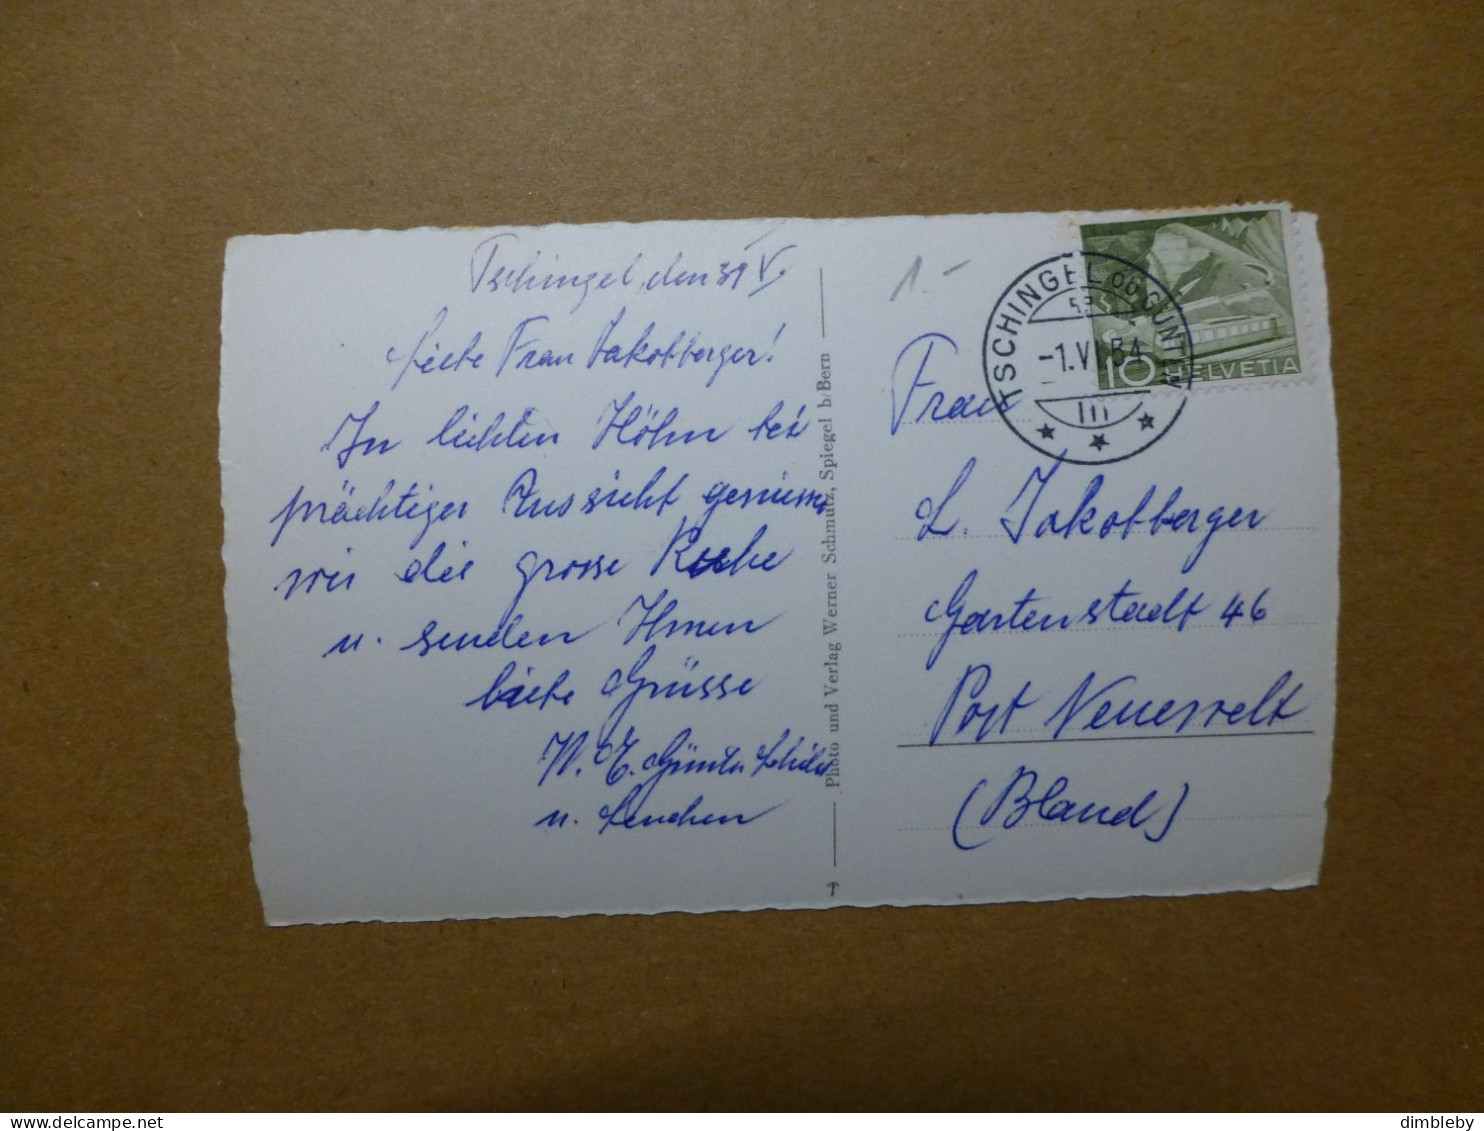 Tschingel, den 31 V.
Liebe Frau Jakobberger!
In lichten Höhn bei
prächtiger Aussicht geniessen
wir die grosse Ruhe
u. senden Ihnen
liebe Grüsse
W. E. Günter
u. Lenchen
Photo und Verlag Werner Schmutz, Spiegel b/Bern
1.-
TSCHINGEL OB GUNTEN
-1.VI.54
10 HELVETIA
Frau
L. Jakobberger
Gartenstadt 46
Post Neuewelt
(Bland)
delcampe.net
dimbleby